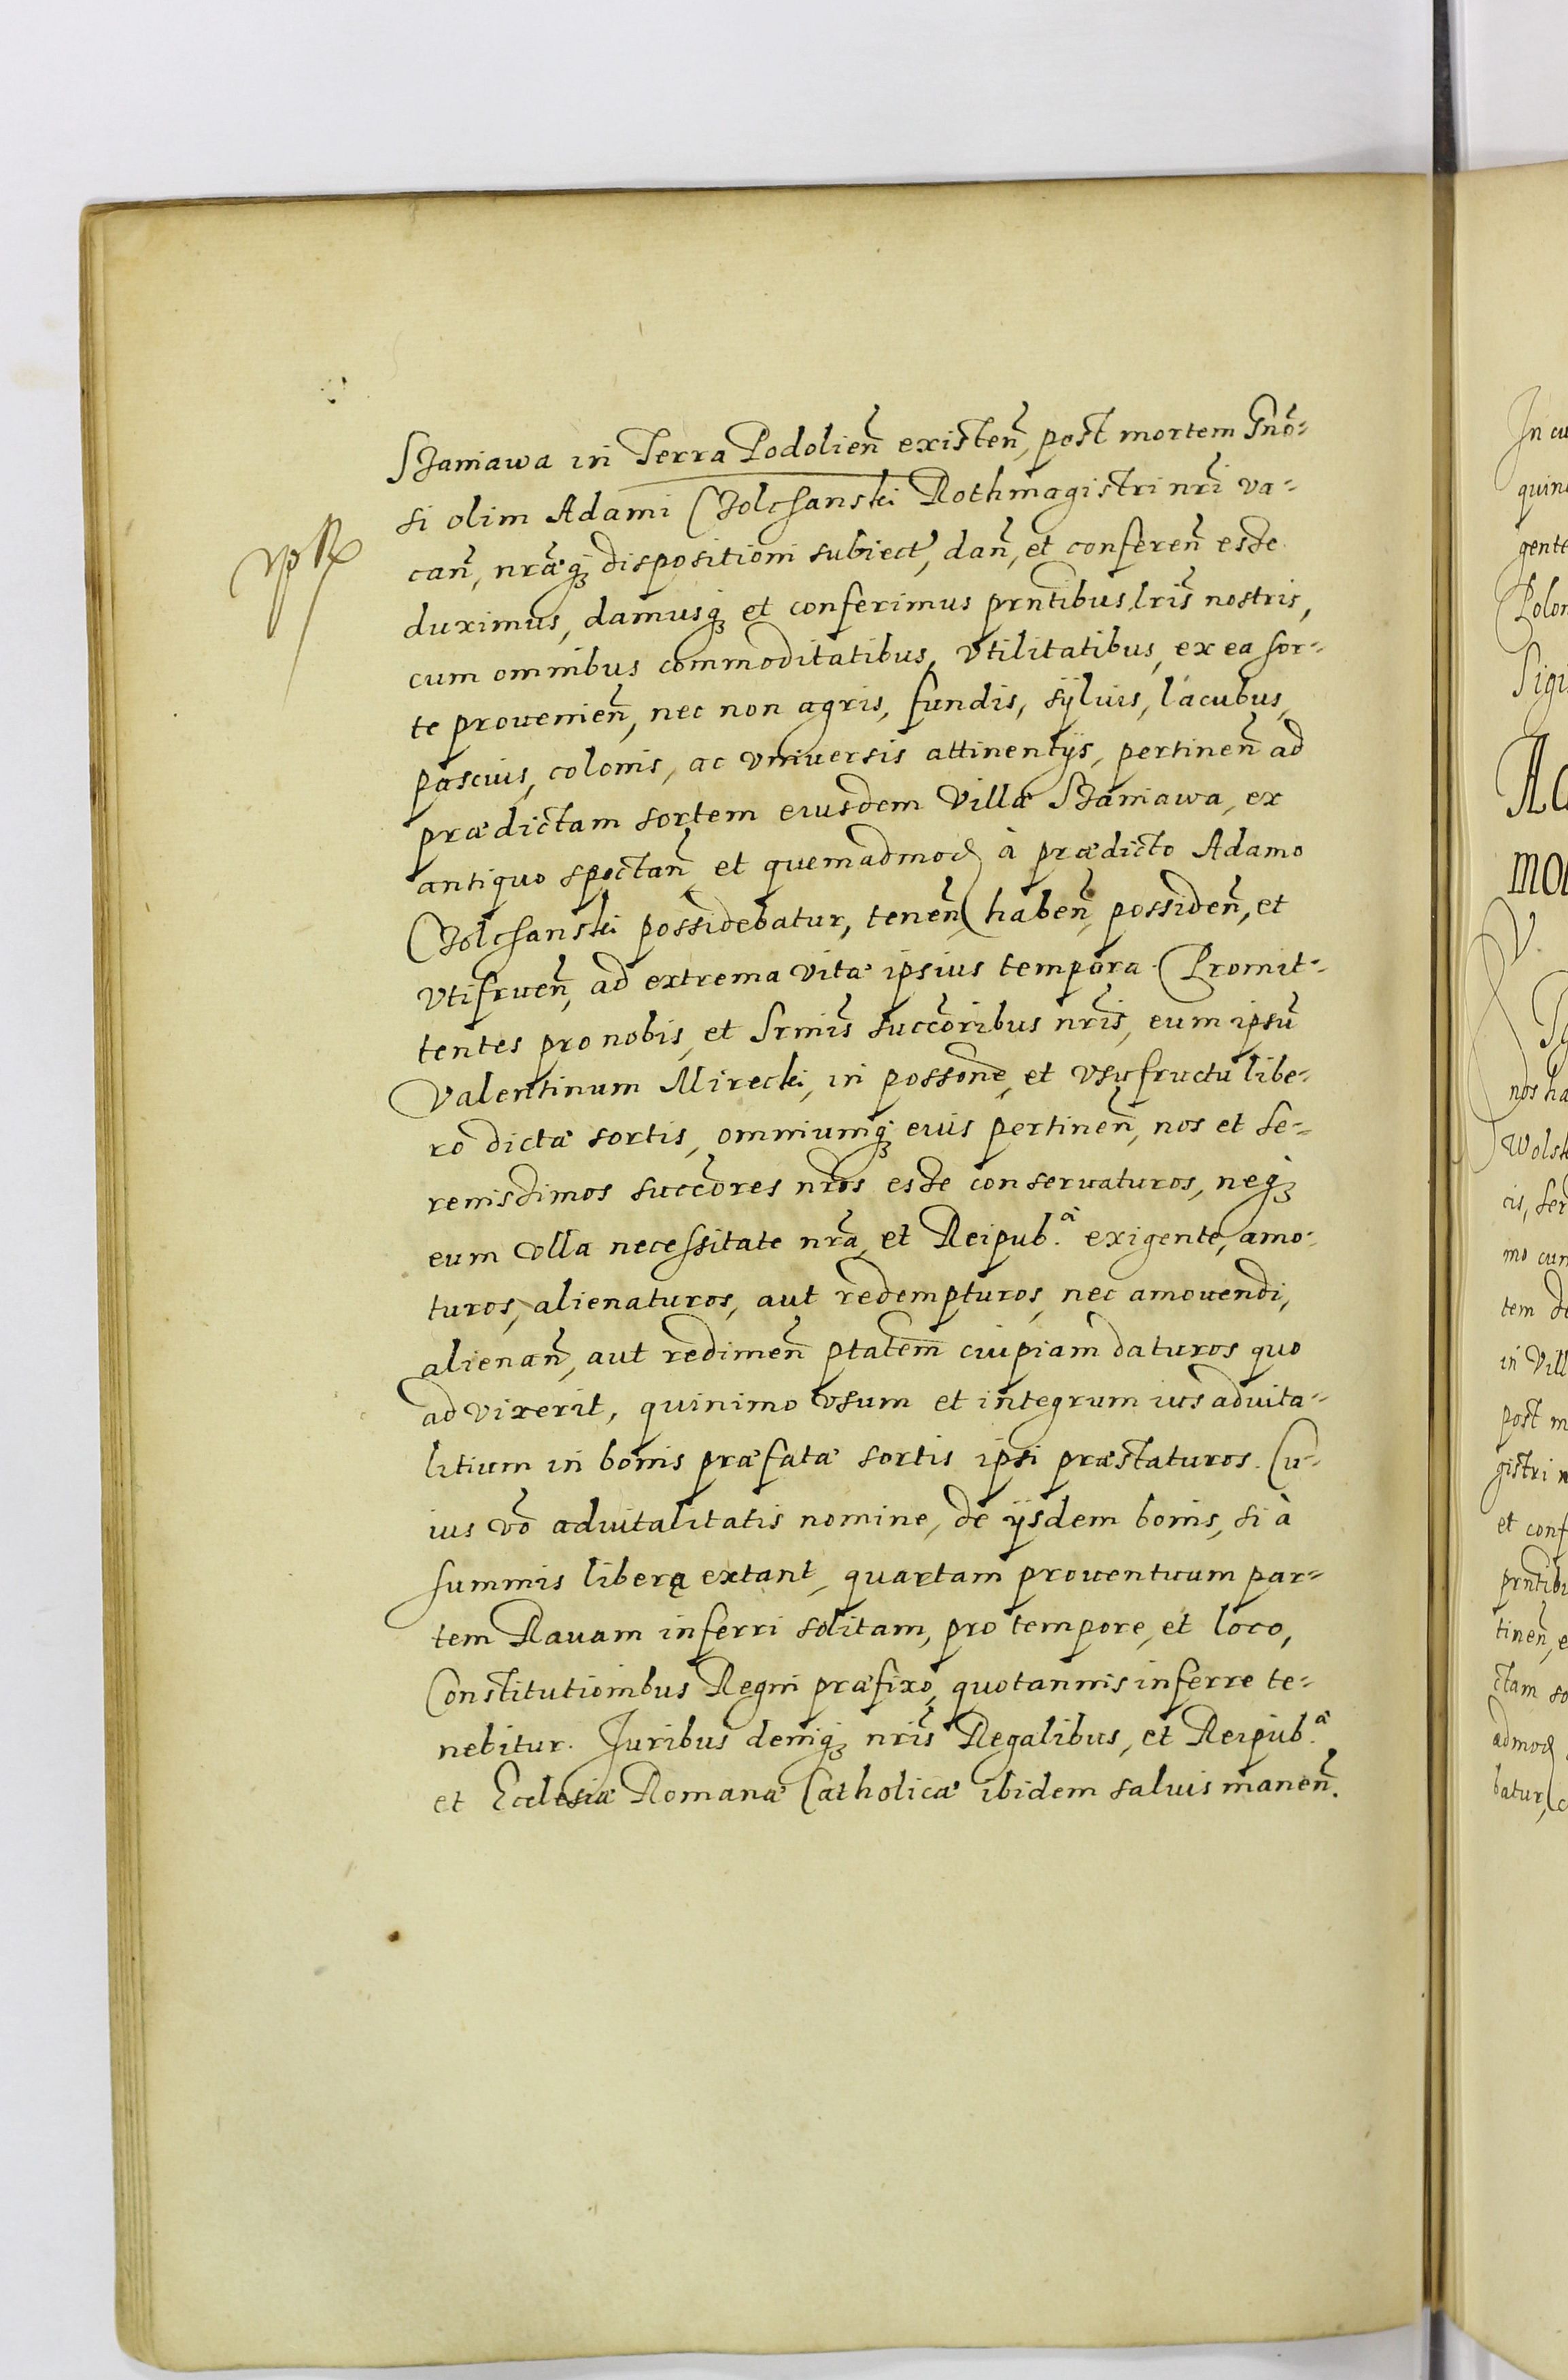 Szaniawa in Terra Podolień existeń, post mortem Gnō-
si olim Adami Czolchanski Rothmagistri nr̃i va-
cañ, nr̃æq; dispositioni subiect, dañ, et conferen̄ esse
duximus, damusq; et conferimus pr̃ntibus lr̃is nostris,
cum omnibus commoditatibus, vtilitatibus, ex ea sor-
te prouenień, nec non agris, fundis, syluis, lacubus,
pascuis, colonis, ac vniuersis attinentijs, pertineñ ad
prædictam sortem eiusdem Villæ Szaniawa, ex
antiquo spectañ et quemadmod à prædicto Adamo
Czolchanski possidebatur, teneñ, habeñ, possideñ, et
vtifrueñ, ad extrema vitæ ipsius tempora. Promit-
tentes pro nobis, et Srmis succõribus nr̃is, eum ipsū
Valentinum Mirecki, in possone, et vsufructu libe-
ro dictæ sortis, omniumq; eius pertineñ, nos et Se-
renissimos succõres nr̃os esse conseruaturos, neq;
eum vlla necessitate nr̃a, et Reipub.ᵃ exigente, amo-
turos, alienaturos, aut redempturos, nec amouendi,
alienañ, aut redimeñ ptatem cuipiam daturos quo
ad vixerit, quinimo vsum et integrum ius aduita-
litium in bonis præfatæ sortis ipsi præstaturos. Cu-
ius vō aduitalitatis nomine, de ijsdem bonis, si à
summis libera extant, quartam prouentuum par-
tem Rauam inferri solitam, pro tempore, et loco,
Constitutionibus Regni præfixo, quotannis inferre te-
nebitur. Juribus deniq; nr̃is Regalibus, et Reipub.ᵃ
et Ecclesiæ Romanæ Catholicæ ibidem saluis maneñ.
In cu
quin
gente
Polon
Sigi
Ac
mo
V.
nos ha
Wolsk
cis, ser
mo cun
tem de
in Vill
post m
gistri n
et conf
pr̃ntibu
tineñ, e
ctam so
admod
batur, c